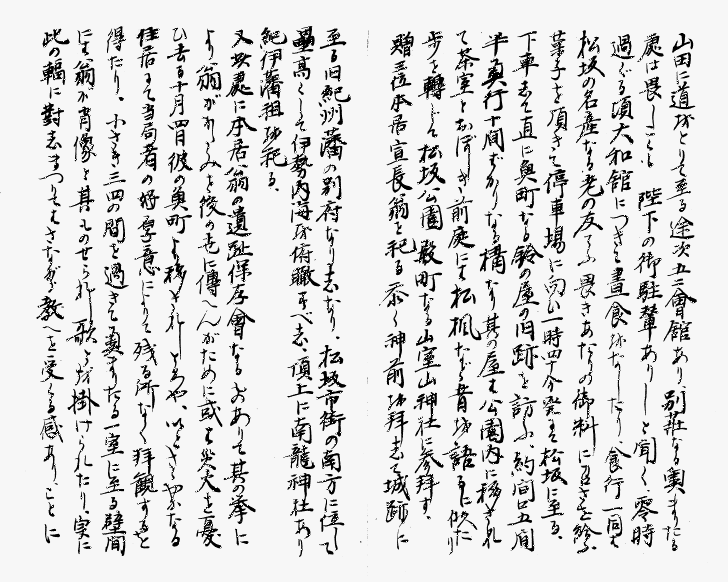 山田に道をとりて至る途次五二會館あり別荘なる奥まりたる
處は畏しこくも 陛下の御駐輦ありしと聞く、零時
過ぐる頃大和館につきて晝食をなしたり、食行一同へ
松坂の名産なる老の友てふ畏きあたりの御料に召させ給ふ
菓子を頂きて停車場に向ひ一時四十分発にて松坂に至る、
下車して直に魚町なる鈴の屋の旧跡を訪ふ、約間口五間
半奥行十間ばかりなる構なり其の屋は公園内に移され
て茶室とおぼしき前庭にて松楓など昔を語るに似たり
歩を轉じて松坂公園殿町なる山室山神社に参拜す、
贈三位本居宣長翁を祀る恭く神前を拜して城跡に
至る旧紀州藩の別府なりしなり、松坂市街の南方に位して
壘高くして伊勢内海を俯瞰すべし、頂上に南龍神社あり
紀伊藩祖を祀る、
又女處に本居翁の遺跡保存會なるありて其の挙に
より翁がかたみを後の世に傳へんがために或は火災を憂
ひ去る十月四日彼の魚町より移されしとや、いとささやかなる
住居にて当局者の好意によりて残る所なく拜観すると
得たり、小さき三四の間を過ぎて奥まりたる一室に至る壁間
にも翁が肖像と其ものせられし歌とを掛けられたり、実に
此の輻に對しまつりてはさながら教へを受くる感ありことに